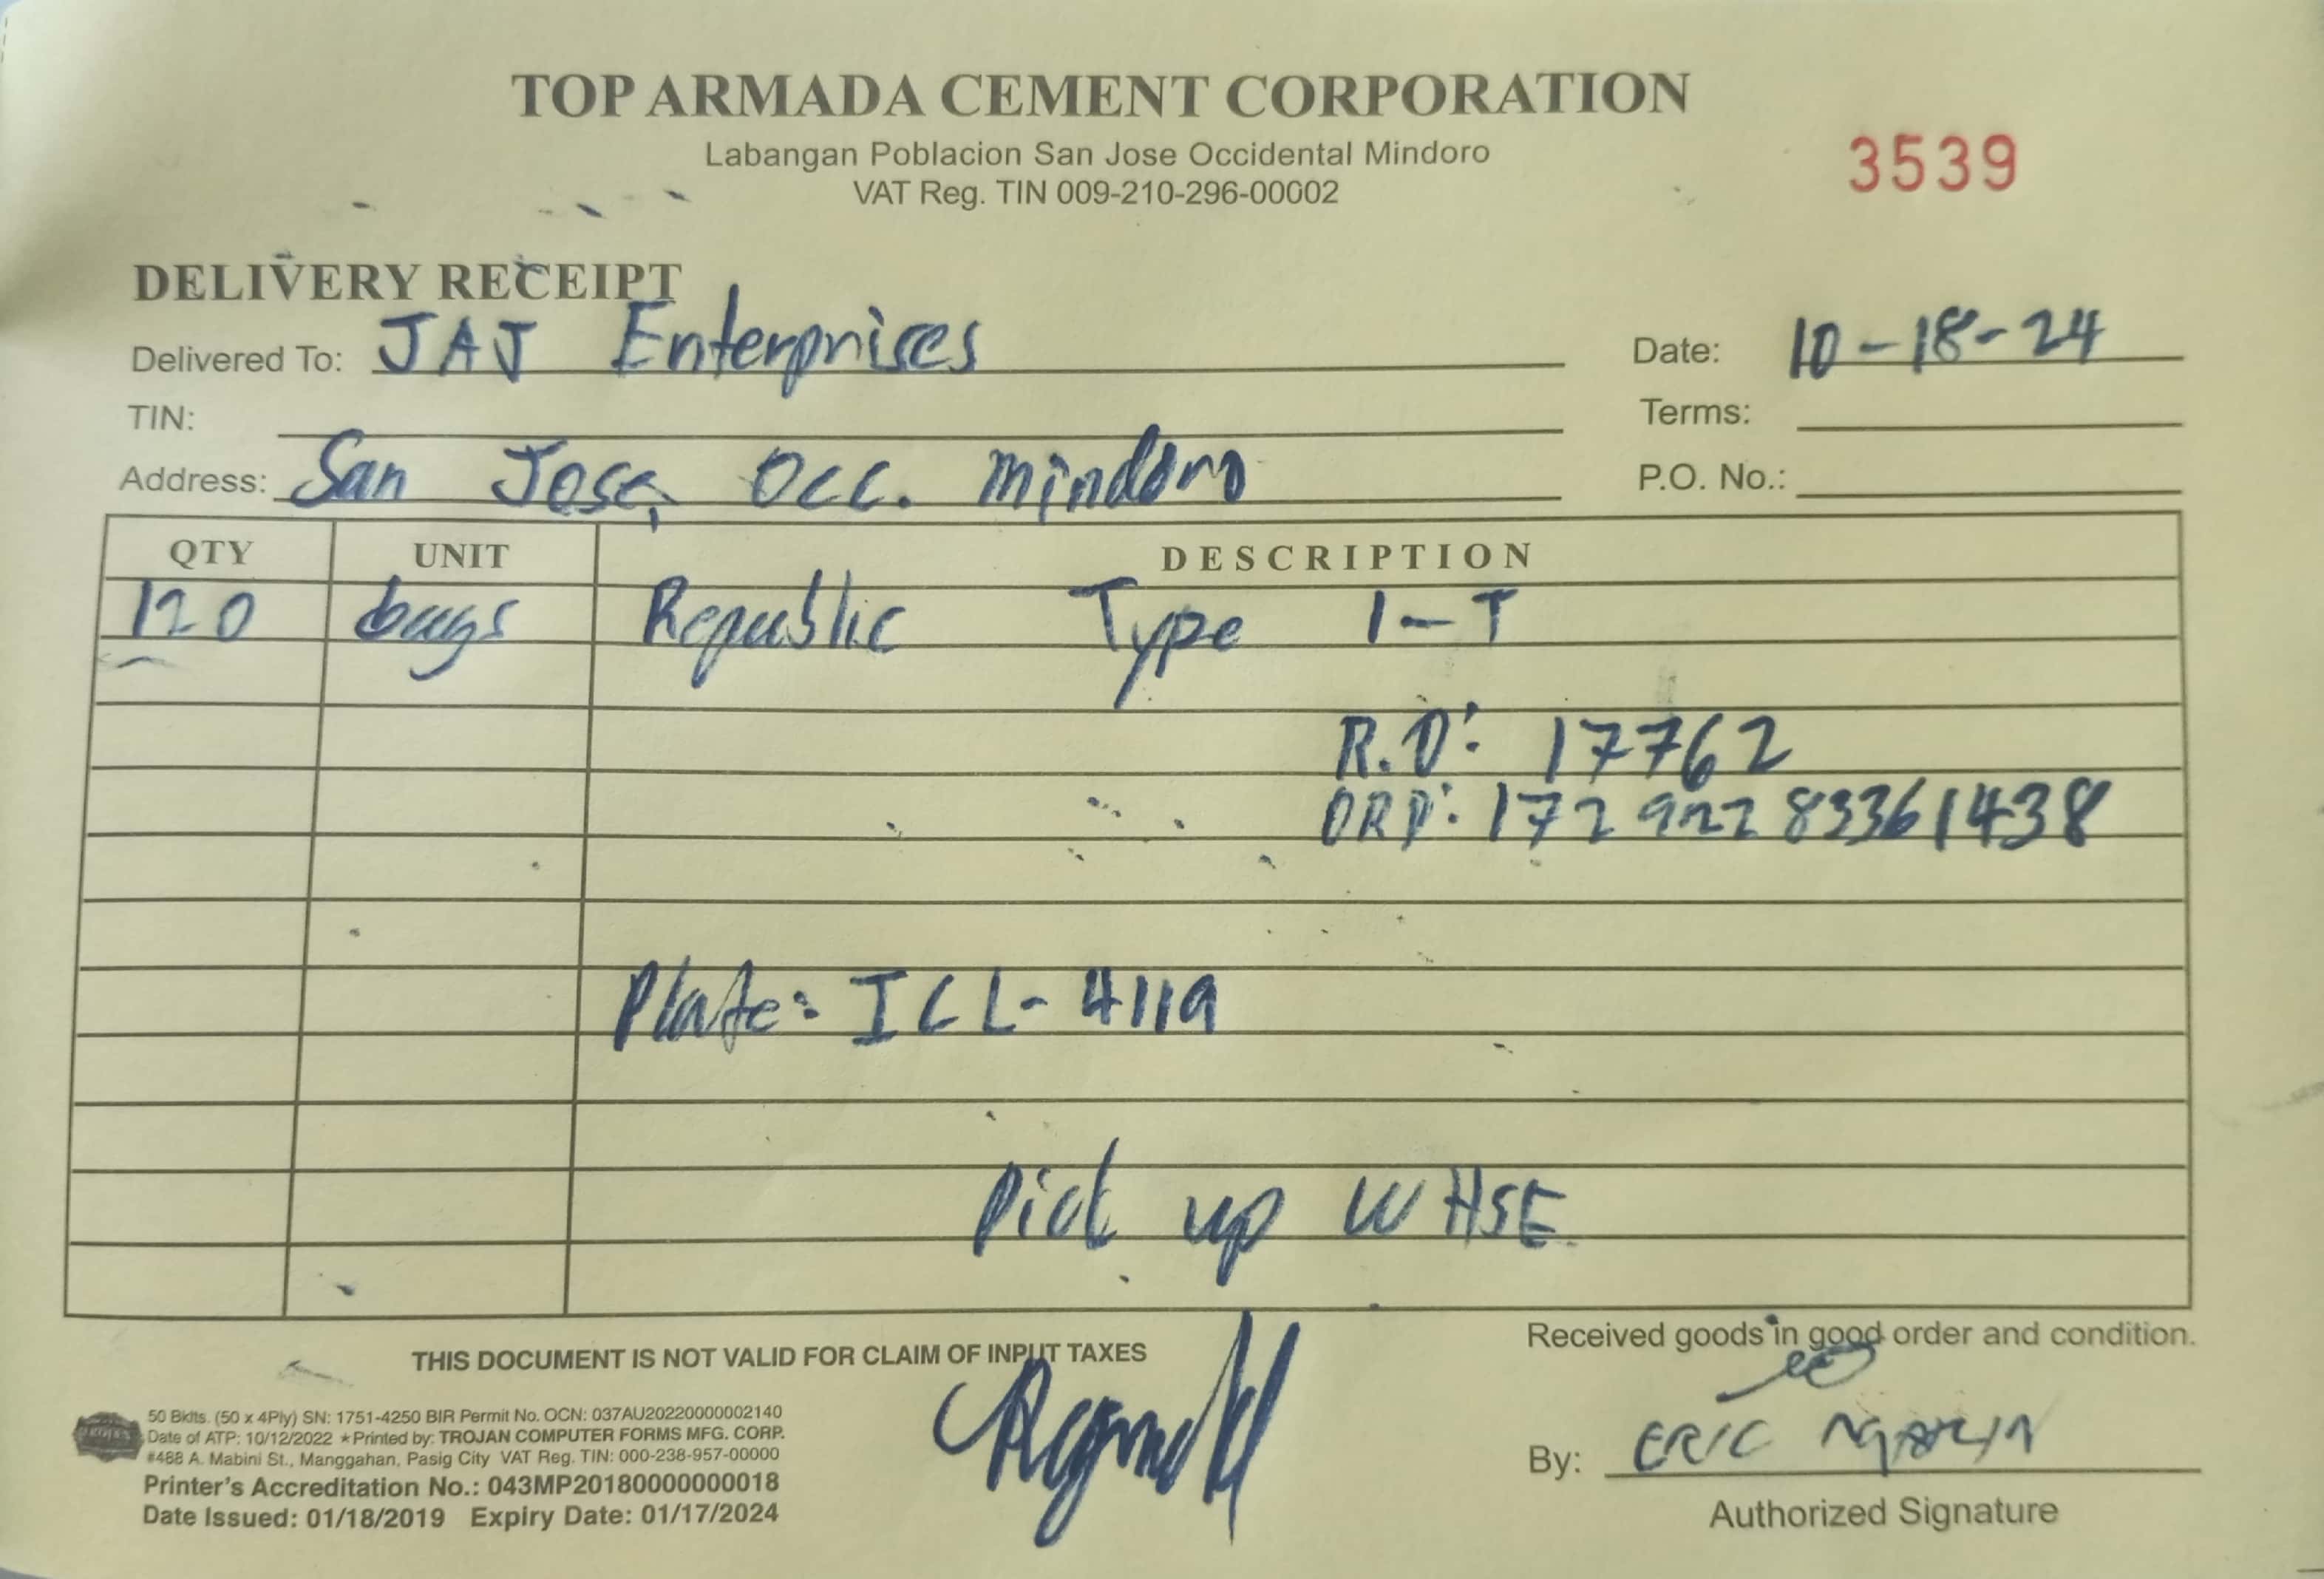 TOP ARMADA CEMENT CORPORATION
Labangan Poblacion San Jose Occidental Mindoro
VAT Reg. TIN 009-210-296-00002
3539
DELIVERY RECEIPT
Delivered To: JAJ Enterprises
Date: 10-18-24
TIN:
Terms:
Address: San Jose, Occ. Mindoro
P.O. No.:
QTY UNIT DESCRIPTION
120 bags Republic Type 1-T
R.O: 17762
ORP: 1729228336 1438
Plate: ICL-4119
Pick up WHSE
THIS DOCUMENT IS NOT VALID FOR CLAIM OF INPUT TAXES
Received goods in good order and condition.
50 Bklts. (50 x 4Ply) SN: 1751-4250 BIR Permit No. OCN: 037AU20220000002140
Date of ATP: 10/12/2022 ★ Printed by: TROJAN COMPUTER FORMS MFG. CORP.
#488 A. Mabini St., Manggahan, Pasig City VAT Reg. TIN: 000-238-957-00000
Printer's Accreditation No.: 043MP20180000000018
Date Issued: 01/18/2019 Expiry Date: 01/17/2024
By: ERIC
Authorized Signature